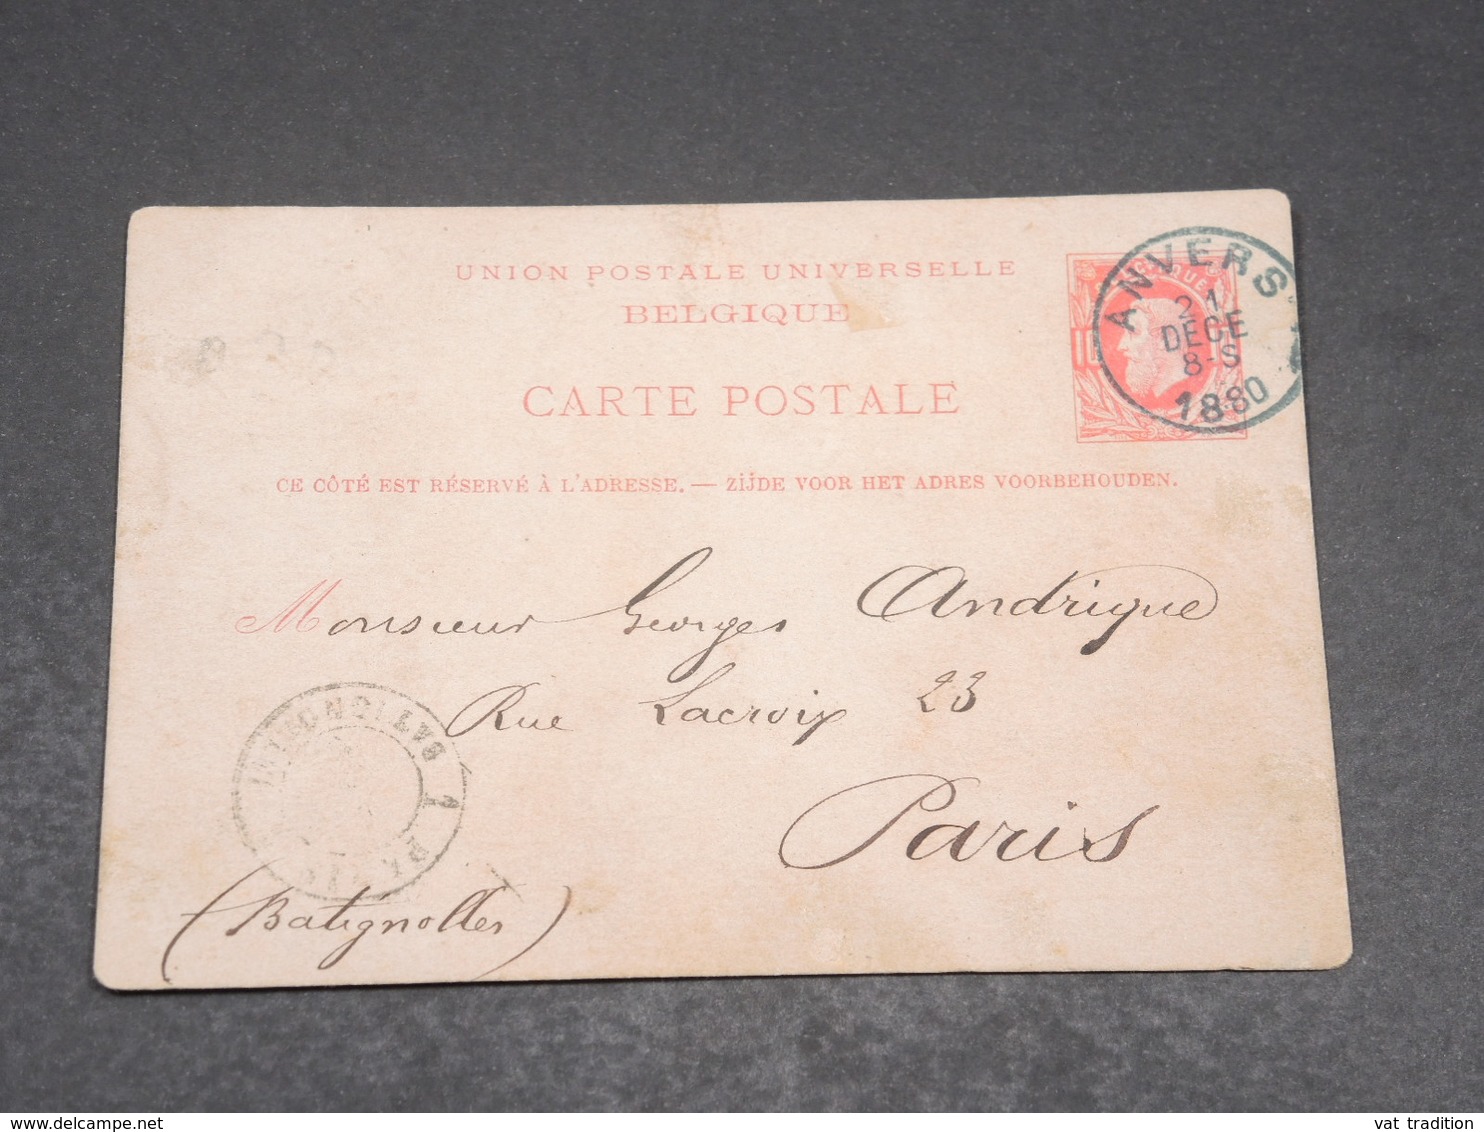 UNION POSTALE UNIVERSELLE
BELGIQUE
CARTE POSTALE
ANVERS
21
DECE
8-S
1880
CE CÔTÉ EST RÉSERVÉ À L'ADRESSE. — ZIJDE VOOR HET ADRES VOORBEHOUDEN.
Monsieur Georges Andrique
Rue Lacroix 23
Paris
(Batignolles)
www.delcampe.net
vat tradition